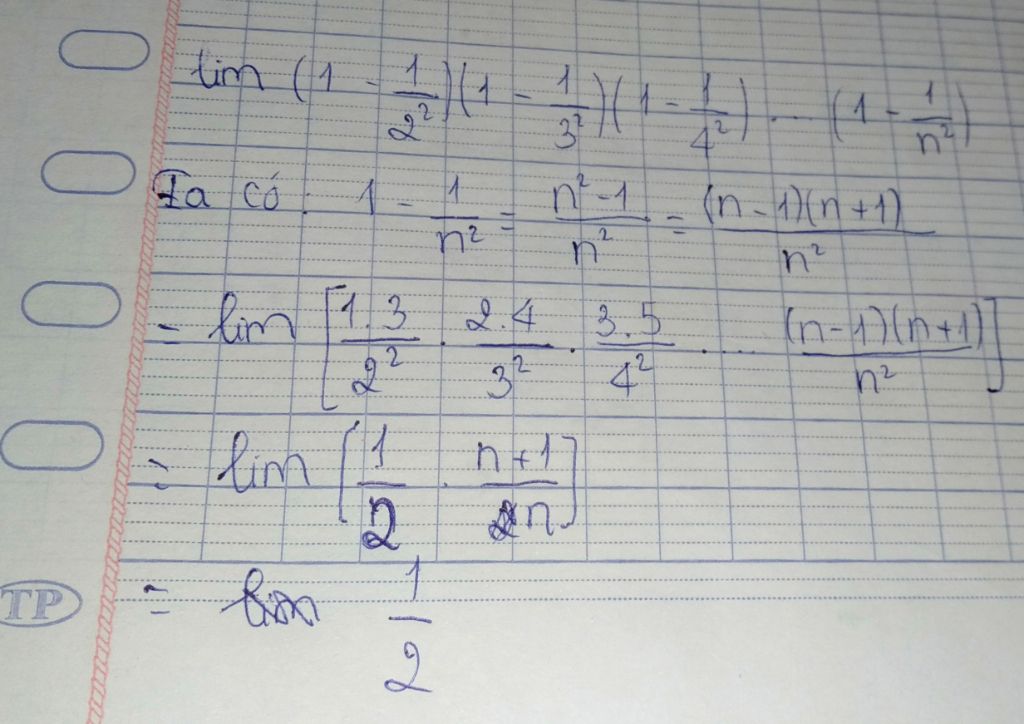 lim (1 - 1/2²)(1 - 1/3²)(1 - 1/4²) ... (1 - 1/n²)
Ta có: 1 - 1/n² = (n² - 1)/n² = (n - 1)(n + 1)/n²
= lim [1.3/2² . 2.4/3² . 3.5/4² . ... (n - 1)(n + 1)/n²]
= lim [1/2 . (n + 1)/n]
= lim 1/2
TP